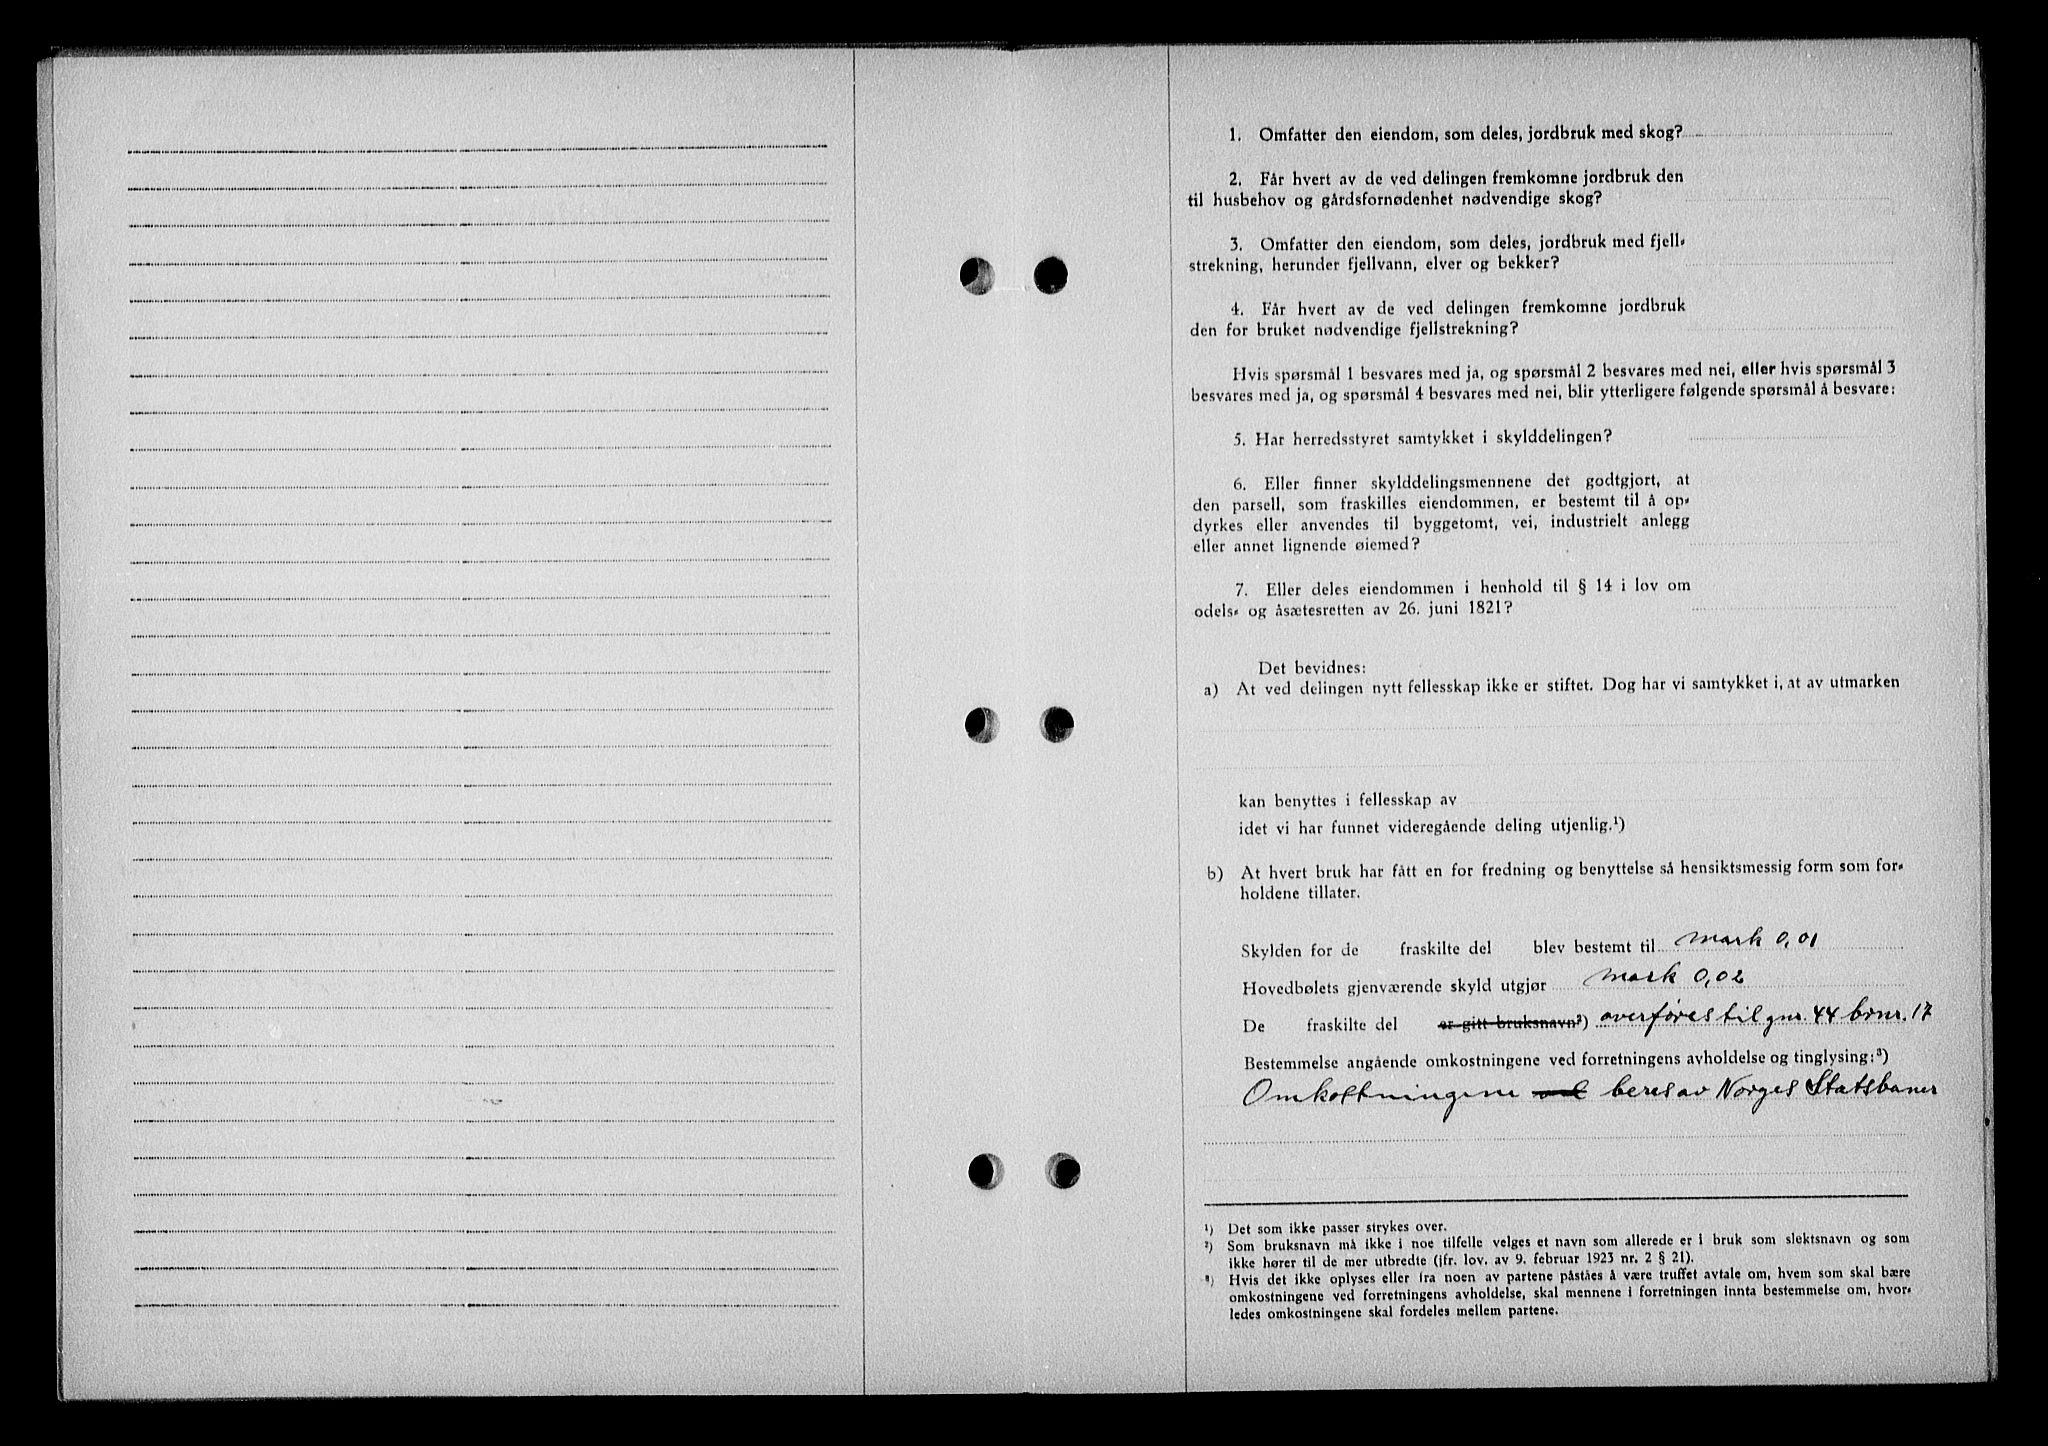 1. Omfatter den eiendom, som deles, jordbruk med skog?
2. Får hvert av de ved delingen fremkomne jordbruk den
til husbehov og gårdsfornødenhet nødvendige skog?
3. Omfatter den eiendom, som deles, jordbruk med fjell-
strekning, herunder fjellvann, elver og bekker?
4. Får hvert av de ved delingen fremkomne jordbruk
den for bruket nødvendige fjellstrekning?
Hvis spørsmål 1 besvares med ja, og spørsmål 2 besvares med nei, eller hvis spørsmål 3
besvares med ja, og spørsmål 4 besvares med nei, blir ytterligere følgende spørsmål å besvare:
5. Har herredsstyret samtykket i skylddelingen?
6. Eller finner skylddelingsmennene det godtgjort, at
den parsell, som fraskilles eiendommen, er bestemt til å op-
dyrkes eller anvendes til byggetomt, vei, industrielt anlegg
eller annet lignende øiemed?
7. Eller deles eiendommen i henhold til § 14 i lov om
odels- og åsætesretten av 26. juni 1821?
Det bevidnes:
a) At ved delingen nytt fellesskap ikke er stiftet. Dog har vi samtykket i, at av utmarken
kan benyttes i fellesskap av
idet vi har funnet videregående deling utjenlig.¹)
b) At hvert bruk har fått en for fredning og benyttelse så hensiktsmessig form som for-
holdene tillater.
Skylden for de fraskilte del blev bestemt til mark 0,01
Hovedbølets gjenværende skyld utgjør mark 0,02
De fraskilte del er gitt bruksnavn²) overføres til gnr. 44 brnr. 17
Bestemmelse angående omkostningene ved forretningens avholdelse og tinglysing:³)
Omkostningene beres av Norges Statsbaner
¹) Det som ikke passer strykes over.
²) Som bruksnavn må ikke i noe tilfelle velges et navn som allerede er i bruk som slektsnavn og som
ikke hører til de mer utbredte (jfr. lov. av 9. februar 1923 nr. 2 § 21).
³) Hvis det ikke oplyses eller fra noen av partene påståes å være truffet avtale om, hvem som skal bære
omkostningene ved forretningens avholdelse, skal mennene i forretningen innta bestemmelse om, hvor-
ledes omkostningene skal fordeles mellem partene.